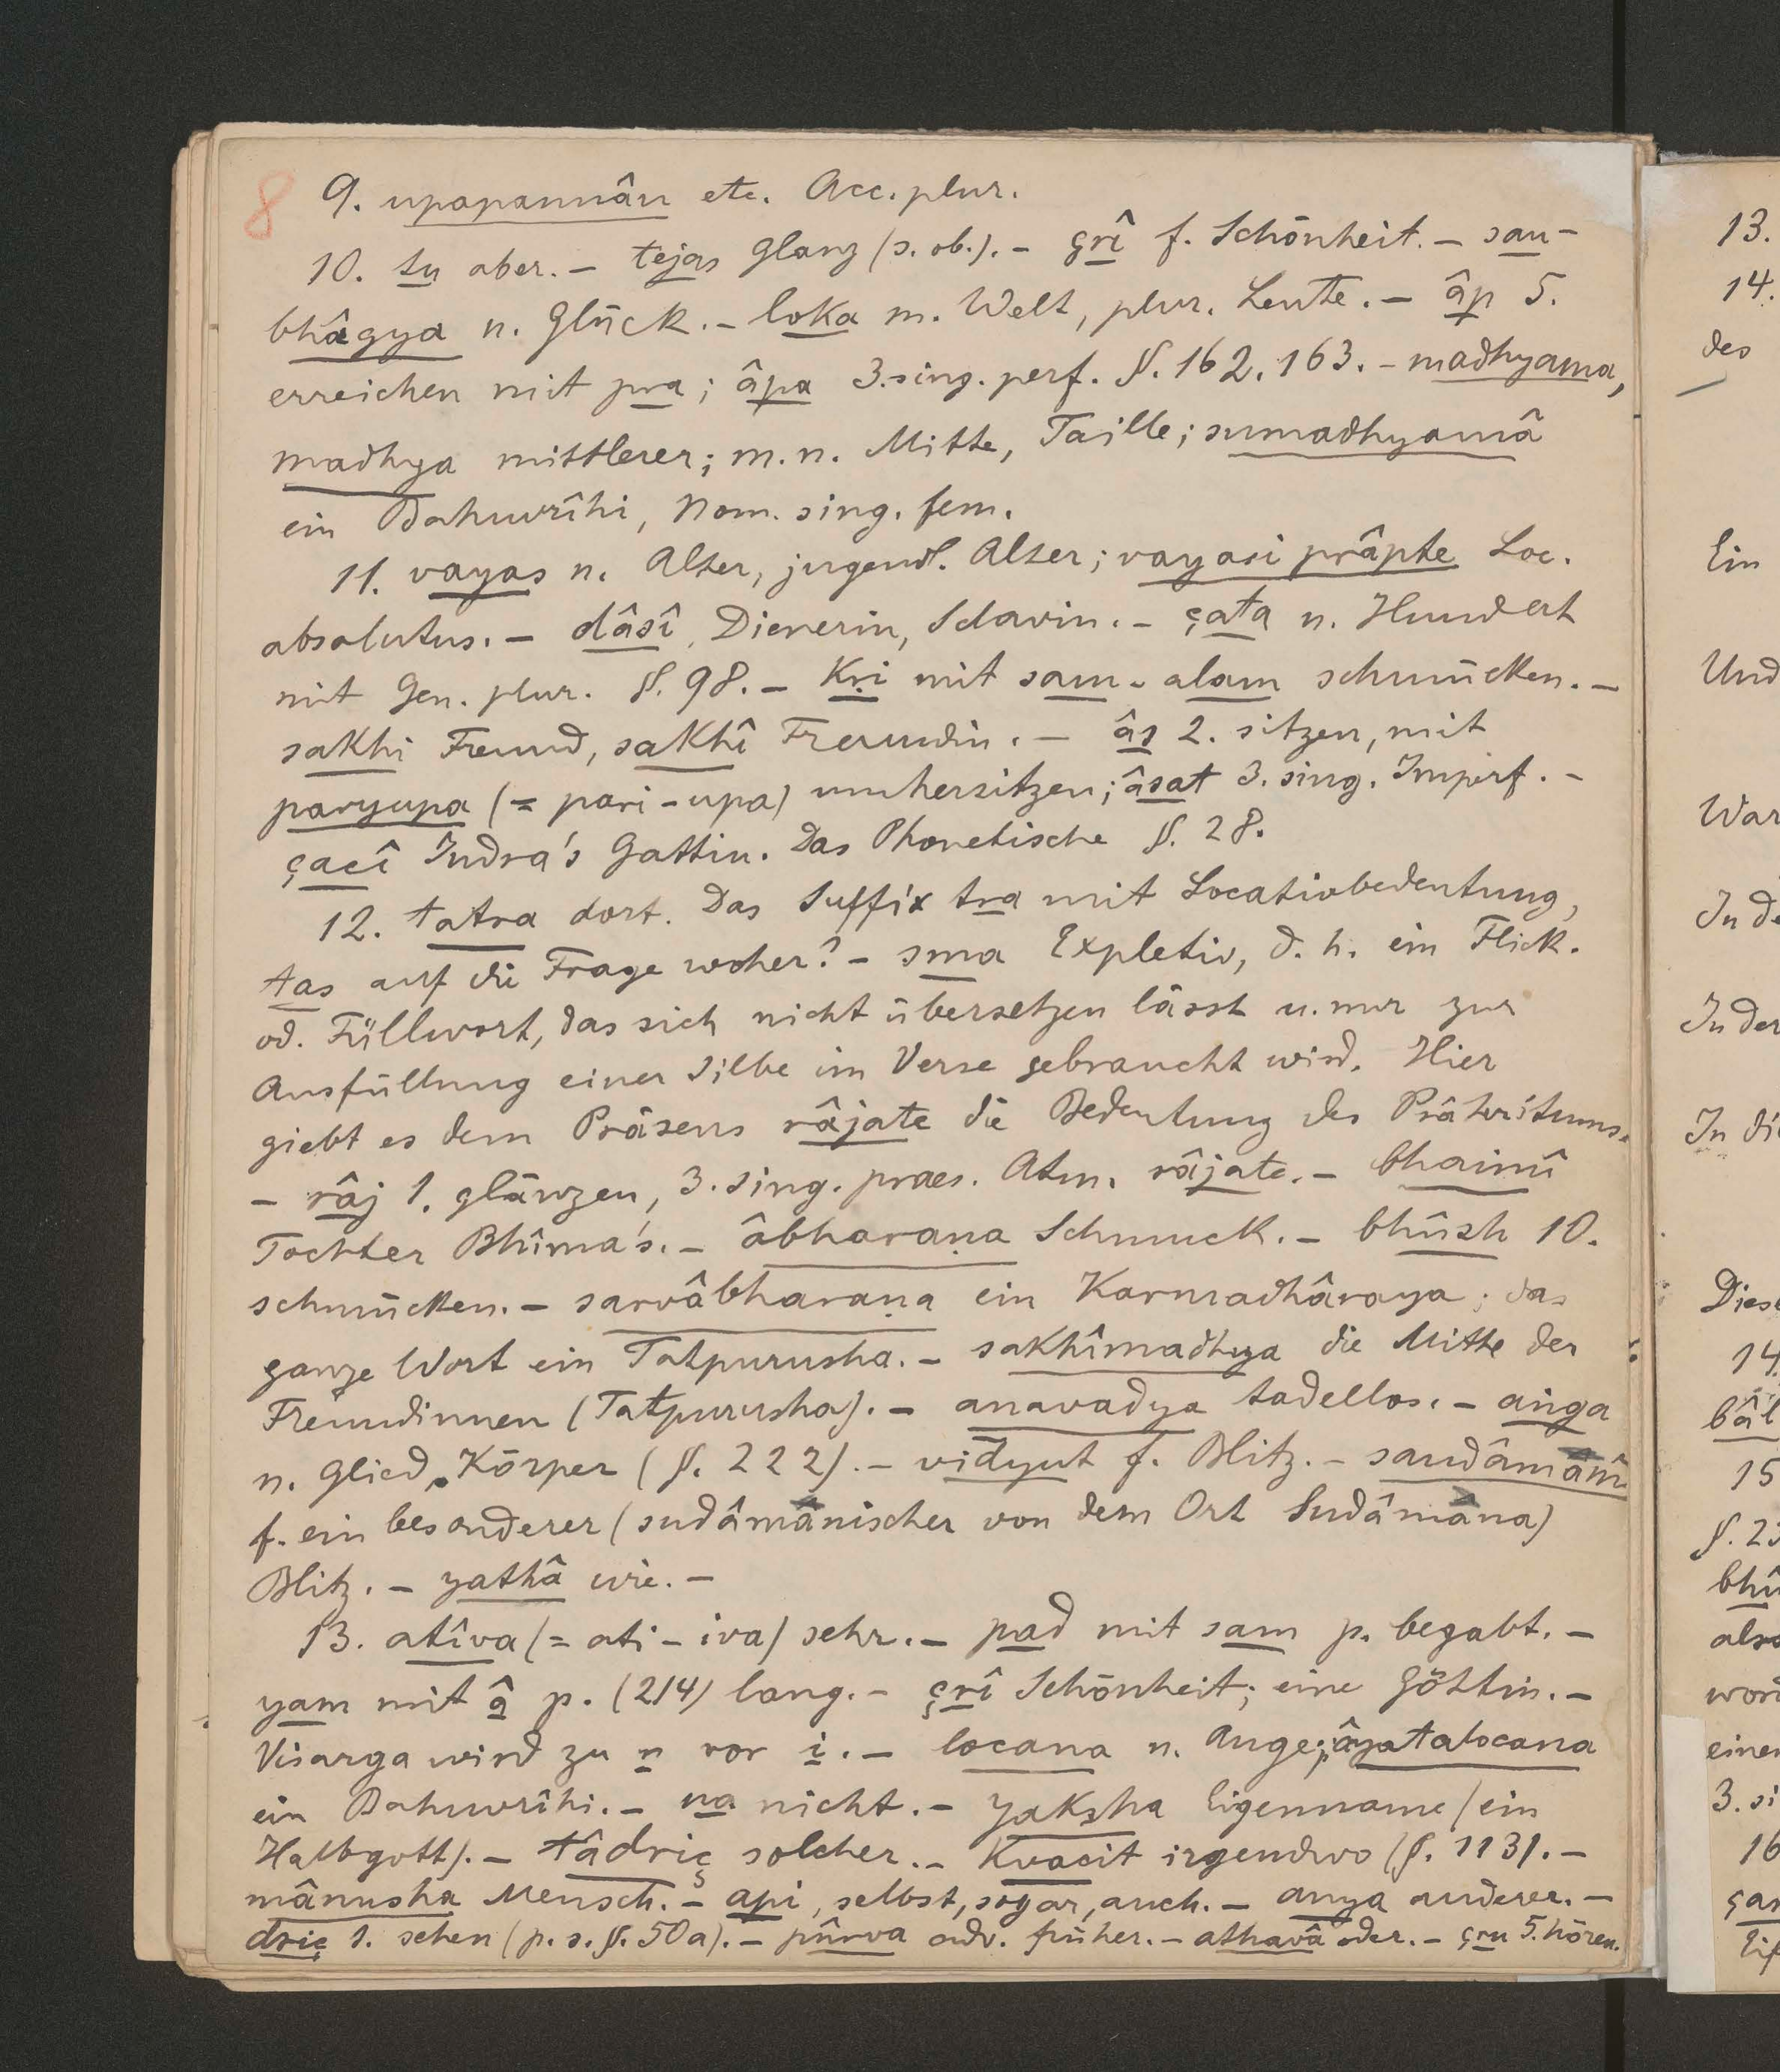 8
9. upapannân etc. Acc. plur.
10. tu aber. – tejas Glanz (s. ob.). – çrî f. Schönheit. – sau-
bhâgya n. Glück. – loka m. Welt, plur. Leute. – âp 5.
erreichen mit pra; âpa 3. sing. perf. §. 162. 163. – madhyama,
madhya mittlerer; m. n. Mitte, Taille; sumadhyamâ
ein Bahuvrîhi, Nom. sing. fem.
11. vayas n. Alter, jugendl. Alter; vayasi prâpte Loc.
absolutus. – dâsî, Dienerin, Sclavin. – çata n. Hundert
mit Gen. plur. §. 98. – Kri mit sam-alam schmücken. –
sakhi Freund, sakhî Freundin. – âs 2. sitzen, mit
paryupa (= pari-upa) umhersitzen; âsat 3. sing. Imperf. –
çacî Indra's Gattin. Das Phonetische §. 28.
12. tatra dort. Das Suffix tra mit Locativbedeutung,
tas auf die Frage woher? – sma Expletiv, d. h. ein Flick.
od. Füllwort, das sich nicht übersetzen lässt u. nur zur
Ausfüllung einer Silbe im Verse gebraucht wird. Hier
giebt es dem Präsens râjate die Bedeutung des Präteritums.
– râj 1. glänzen, 3. sing. praes. Atm. râjate. – bhaimî
Tochter Bhîma's. – âbharaṇa Schmuck. – bhûsh 10.
schmücken. – sarvâbharaṇa ein Karmadhâraya; das
ganze Wort ein Tatpurusha. – sakhîmadhya die Mitte der
Freundinnen (Tatpurusha). – anavadya tadellos. – aṅga
n. Glied, Körper (§. 222). – vidyut f. Blitz. – saudâmanî
f. ein besonderer (sudâmanischer von dem Ort Sudâmana)
Blitz. – yathâ wie. –
13. atîva (= ati-iva) sehr. – pad mit sam p. begabt. –
yam mit â p. (214) lang. – çrî Schönheit; eine Göttin. –
Visarga wird zu r vor i. – locana n. Auge; âyatalocana
ein Bahuvrîhi. – na nicht. – yaksha Eigenname (ein
Halbgott). – tâdriç solcher. – Kvacit irgendwo (§. 113). –
mânusha Mensch. – api, selbst, sogar, auch. – anya anderer. –
driç 1. sehen (p. s. §. 50a). – pûrva adv. früher. – athavâ oder. – çru 5. hören.
13.
14.
des
Ein
Und
War
In de
In der
In die
Dies
14
bâl
15
§. 23
bhû
also
word
einer
3. si
16
çar